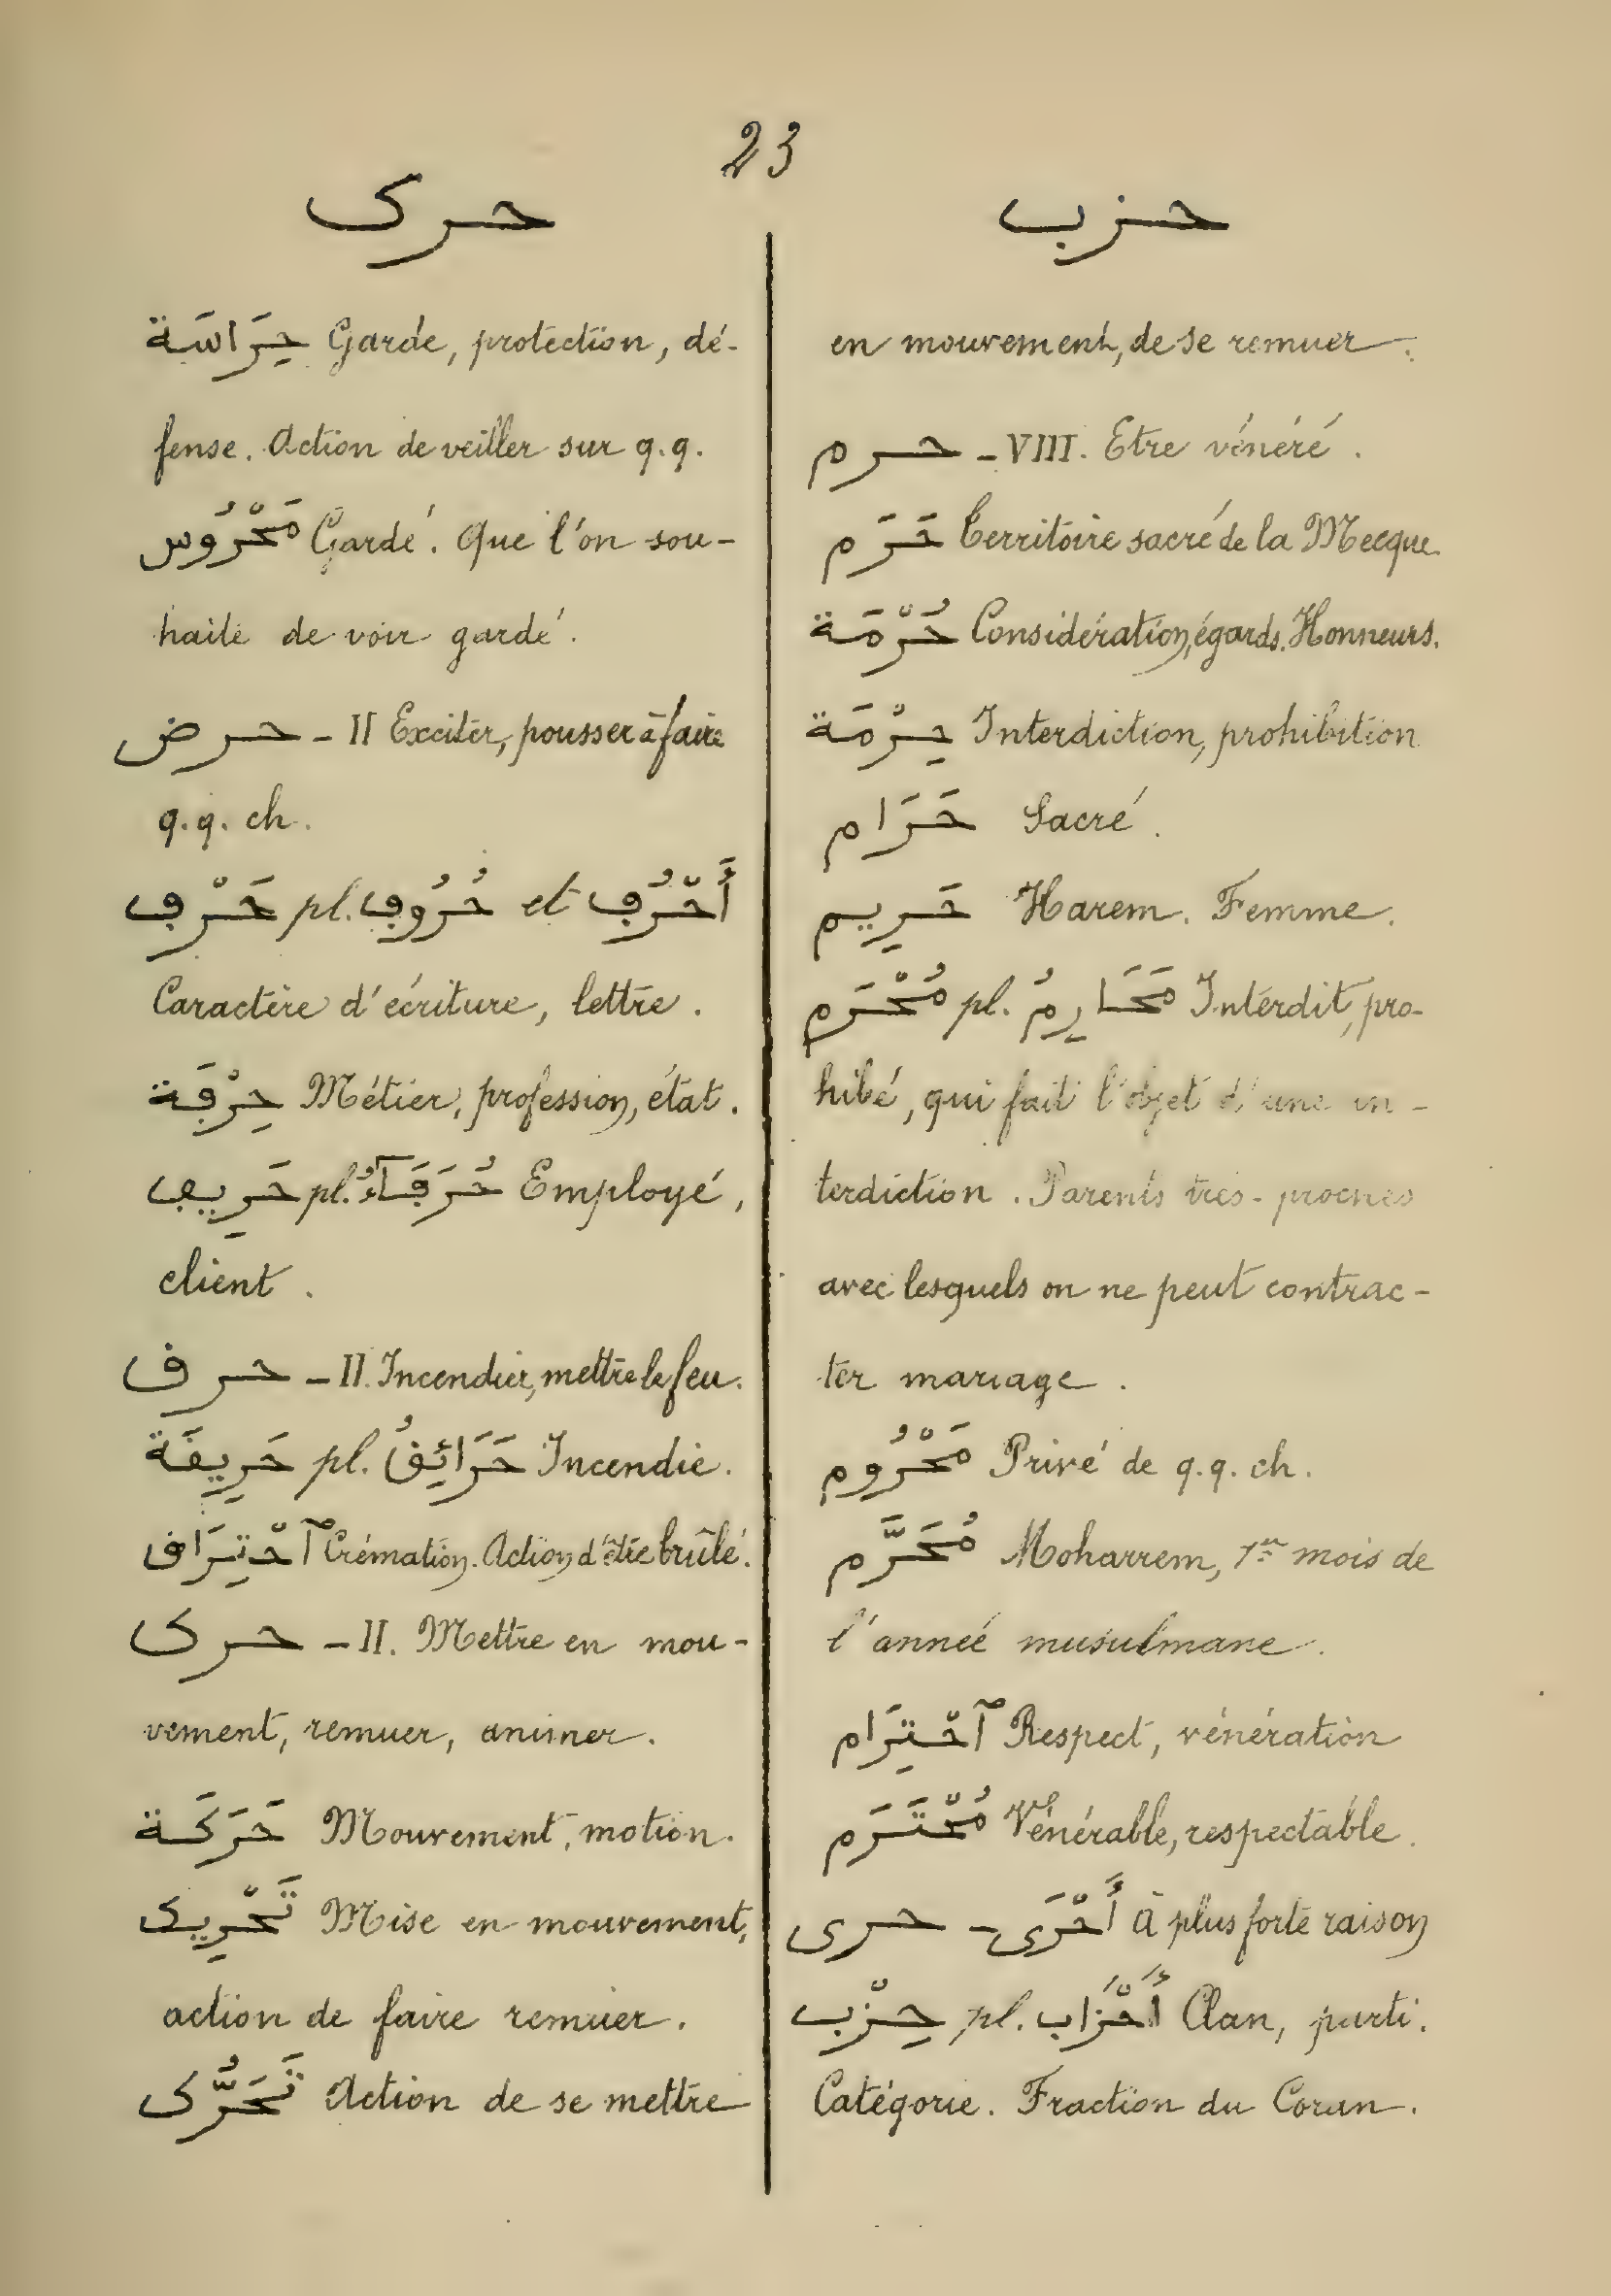 23
حرك
حزب
حِرَاسَة Garde, protection, dé-
fense. Action de veiller sur q.q.
مَحْرُوس Gardé. Que l'on sou-
haite de voir gardé.
حرض – II Exciter, pousser à faire
q.q. ch.
حَرْف pl. حُرُوف et أَحْرُف
Caractère d'écriture, lettre.
حِرْفَة Métier, profession, état.
حَرِيف pl. حُرَفَآءُ Employé,
client.
حرق – II. Incendier, mettre le feu.
حَرِيقَة pl. حَرَائِقُ Incendie.
ٱحْتِرَاق Crémation. Action d'être brûlé.
حرك – II. Mettre en mou-
vement, remuer, animer.
حَرَكَة Mouvement, motion.
تَحْرِيك Mise en mouvement,
action de faire remuer.
تَحَرُّك Action de se mettre
en mouvement, de se remuer.
حرم – VIII. Etre vénéré.
حَرَم Territoire sacré de la Mecque.
حُرْمَة Considération, égards. Honneurs.
حِرْمَة Interdiction, prohibition
حَرَام Sacré.
حَرِيم Harem. Femme.
مُحْرَم pl. مَحَارِمُ Interdit, pro-
hibé, qui fait l'objet d'une in-
terdiction. Parents très-proches
avec lesquels on ne peut contrac-
ter mariage.
مَحْرُوم Privé de q.q. ch.
مُحَرَّم Moharrem, 1er mois de
l'année musulmane.
ٱحْتِرَام Respect, vénération
مُحْتَرَم Vénérable, respectable.
حرى – أَحْرَى à plus forte raison
حِزْب pl. أَحْزَاب Clan, parti.
Catégorie. Fraction du Coran.